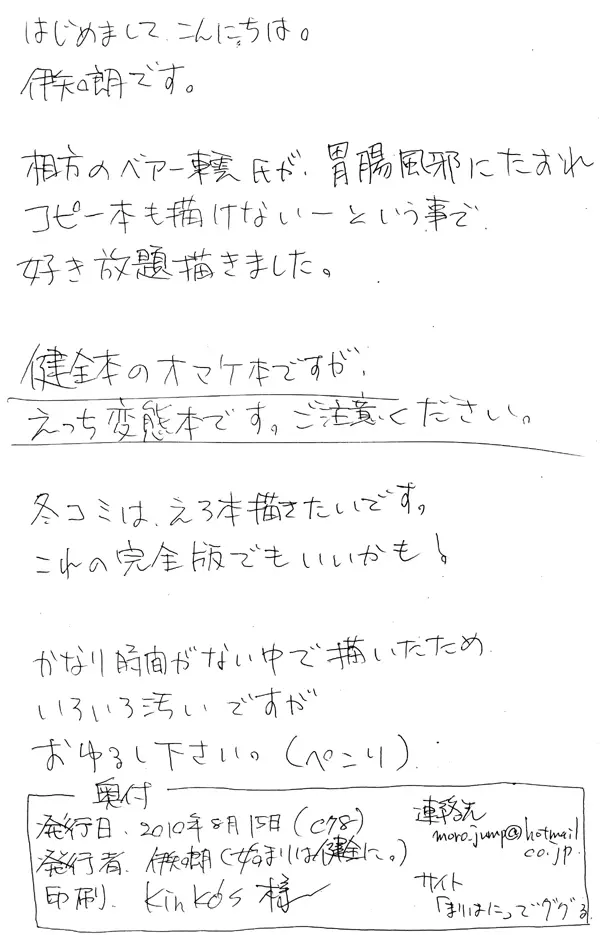 はじめまして、こんにちは。
伊知朗です。
相方のベアー轟氏が、胃腸風邪にたおれ
コピー本も描けないーという事で
好き放題描きました。
健全本のオマケ本ですが、
えっち変態本です。ご注意ください。
冬コミは、えろ本描きたいです。
これの完全版でもいいかも！
かなり時間がない中で描いたため
いろいろ汚いですが
おゆるし下さい。(ぺこり)
奥付
発行日、2010年8月15日(C78)
発行者、伊知朗(始まりは健全に。)
印刷、Kinko's 様
連絡先
moro_jump@hotmail
co.jp
サイト
「まりはに」でググる